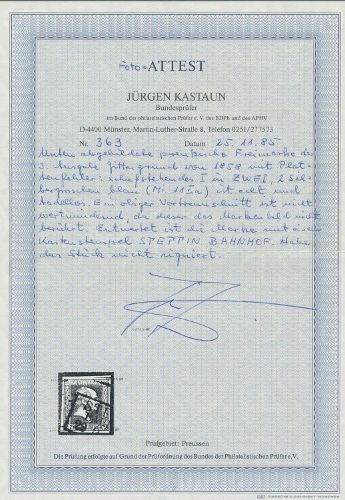 Foto = ATTEST
JÜRGEN KASTAUN
Bundesprüfer
im Bund der philatelistischen Prüfer e. V. des BDPh und des APHV
D-4400 Münster, Martin-Luther-Straße 8, Telefon 0251/277573
Nr. 363 Datum 25.11.85
Unten abgebildete preußische Freimarke der
3. Ausgabe Gittergrund von 1858 mit Plat-
tenfehler: schiefstehendes I in ZWEI, 2 Sil-
bergroschen blau (Mi 11Ia) ist echt und
tadellos. Ein obiger Vortrennschnitt ist nicht
wertmindernd, da dieser das Markenbild nicht
berührt. Entwertet ist die Marke mit einem
Kastenstempel STETTIN BAHNHOF. Habe
das Stück nicht signiert.
Prüfgebiet: Preussen
Die Prüfung erfolgte auf Grund der Prüfordnung des Bundes der Philatelistischen Prüfer e.V.